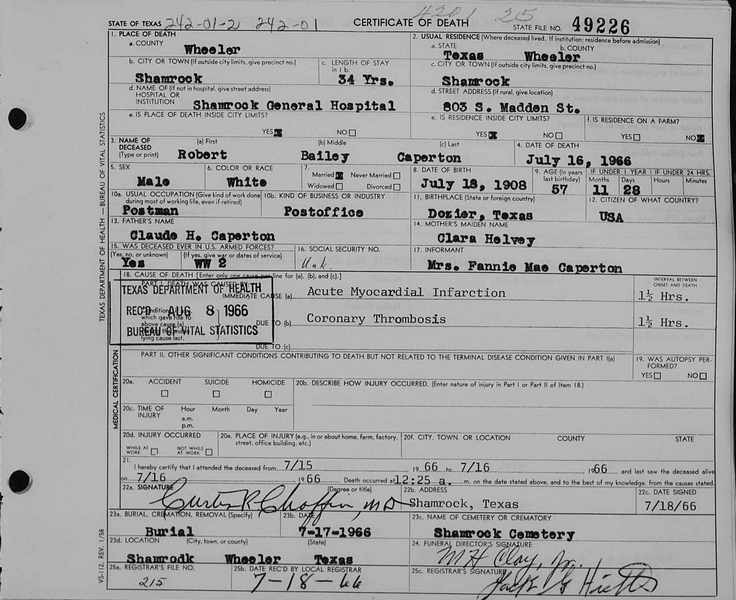 242-01-2 242-01
STATE OF TEXAS CERTIFICATE OF DEATH STATE FILE NO. 49226
215
1. PLACE OF DEATH
a. COUNTY Wheeler
2. USUAL RESIDENCE (Where deceased lived. If institution: residence before admission)
a. STATE Texas b. COUNTY Wheeler
b. CITY OR TOWN (If outside city limits, give precinct no.) Shamrock
c. LENGTH OF STAY in 1 b. 34 Yrs.
c. CITY OR TOWN (If outside city limits, give precinct no.) Shamrock
d. NAME OF (If not in hospital, give street address) HOSPITAL OR INSTITUTION Shamrock General Hospital
d. STREET ADDRESS (If rural, give location) 803 S. Madden St.
e. IS PLACE OF DEATH INSIDE CITY LIMITS? YES NO
e. IS RESIDENCE INSIDE CITY LIMITS? YES NO
f. IS RESIDENCE ON A FARM? YES NO
3. NAME OF DECEASED (Type or print) (a) First Robert (b) Middle Bailey (c) Last Caperton
4. DATE OF DEATH July 16, 1966
5. SEX Male
6. COLOR OR RACE White
7. Married Never Married Widowed Divorced
8. DATE OF BIRTH July 18, 1908
9. AGE (In years last birthday) 57 IF UNDER 1 YEAR Months 11 Days 28 IF UNDER 24 HRS. Hours Minutes
10a. USUAL OCCUPATION (Give kind of work done during most of working life, even if retired) Postman
10b. KIND OF BUSINESS OR INDUSTRY Postoffice
11. BIRTHPLACE (State or foreign country) Dozier, Texas
12. CITIZEN OF WHAT COUNTRY? USA
13. FATHER'S NAME Claude H. Caperton
14. MOTHER'S MAIDEN NAME Clara Helvey
15. WAS DECEASED EVER IN U.S. ARMED FORCES? (Yes, no, or unknown) Yes (If yes, give war or dates of service) WW 2
16. SOCIAL SECURITY NO. Unk.
17. INFORMANT Mrs. Fannie Mae Caperton
18. CAUSE OF DEATH [Enter only one cause per line for (a), (b), and (c).]
INTERVAL BETWEEN ONSET AND DEATH
IMMEDIATE CAUSE (a) Acute Myocardial Infarction 1½ Hrs.
DUE TO (b) Coronary Thrombosis 1½ Hrs.
DUE TO (c)
TEXAS DEPARTMENT OF HEALTH
REC'D AUG 8 1966
BUREAU OF VITAL STATISTICS
PART II. OTHER SIGNIFICANT CONDITIONS CONTRIBUTING TO DEATH BUT NOT RELATED TO THE TERMINAL DISEASE CONDITION GIVEN IN PART I(a)
19. WAS AUTOPSY PERFORMED? YES NO
20a. ACCIDENT SUICIDE HOMICIDE
20b. DESCRIBE HOW INJURY OCCURRED. (Enter nature of injury in Part I or Part II of Item 18.)
20c. TIME OF INJURY Hour a.m. p.m. Month Day Year
20d. INJURY OCCURRED WHILE AT WORK NOT WHILE AT WORK
20e. PLACE OF INJURY (e.g., in or about home, farm, factory, street, office building, etc.)
20f. CITY, TOWN, OR LOCATION COUNTY STATE
21. I hereby certify that I attended the deceased from 7/15 1966 to 7/16 1966 and last saw the deceased alive
on 7/16 1966 Death occurred at 12:25 a. m. on the date stated above, and to the best of my knowledge, from the causes stated.
22a. SIGNATURE (Degree or title) Curtis R Choffin, MD
22b. ADDRESS Shamrock, Texas
22c. DATE SIGNED 7/18/66
23a. BURIAL, CREMATION, REMOVAL (Specify) Burial
23b. DATE 7-17-1966
23c. NAME OF CEMETERY OR CREMATORY Shamrock Cemetery
23d. LOCATION (City, town, or county) (State) Shamrodk Wheeler Texas
24. FUNERAL DIRECTOR'S SIGNATURE M H Clay, Jr.
25a. REGISTRAR'S FILE NO. 215
25b. DATE REC'D BY LOCAL REGISTRAR 7-18-66
25c. REGISTRAR'S SIGNATURE
TEXAS DEPARTMENT OF HEALTH — BUREAU OF VITAL STATISTICS
MEDICAL CERTIFICATION
VS-112, REV. 1/58